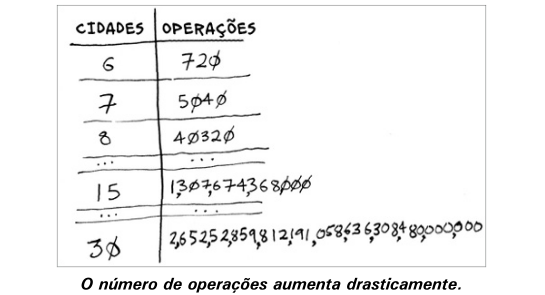 CIDADES OPERAÇÕES
6 720
7 5040
8 40320
... ...
15 1,307,674,368,000
... ...
30 2,652,52,859,812,191,058,636,308,480,000,000
O número de operações aumenta drasticamente.